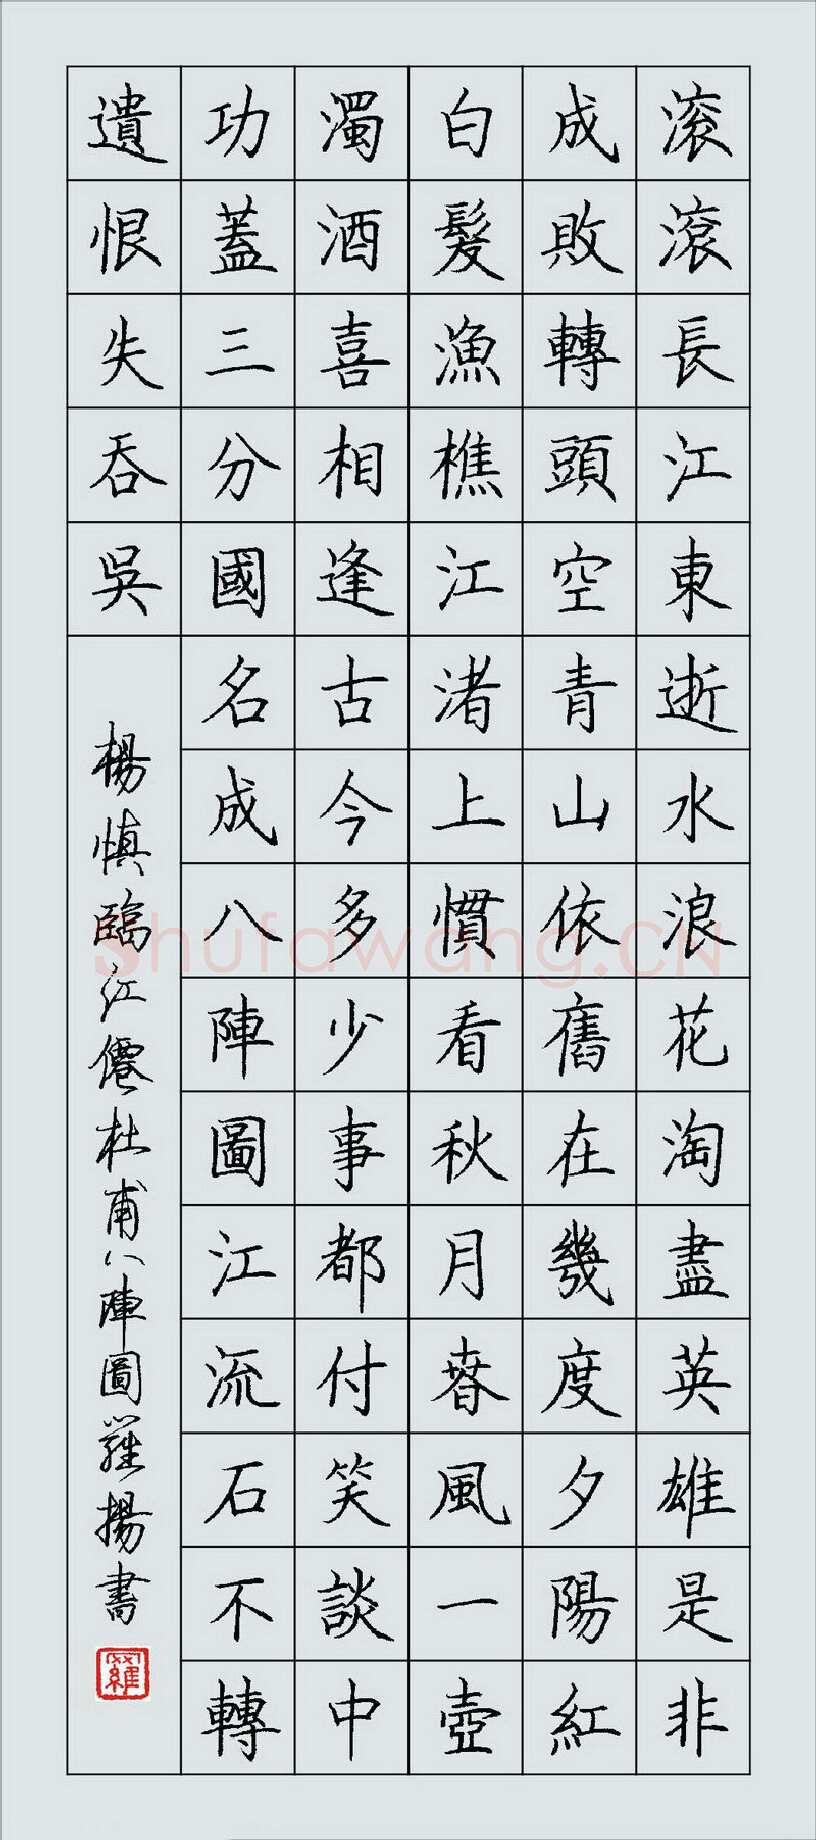 滚滾長江東逝水浪花淘盡英雄是非
成敗轉頭空青山依舊在幾度夕陽紅
白髮漁樵江渚上慣看秋月春風一壺
濁酒喜相逢古今多少事都付笑談中
功蓋三分國名成八陣圖江流石不轉
遺恨失吞吳
楊慎臨江僊杜甫八陣圖羅揚書
羅
Shufawang.CN